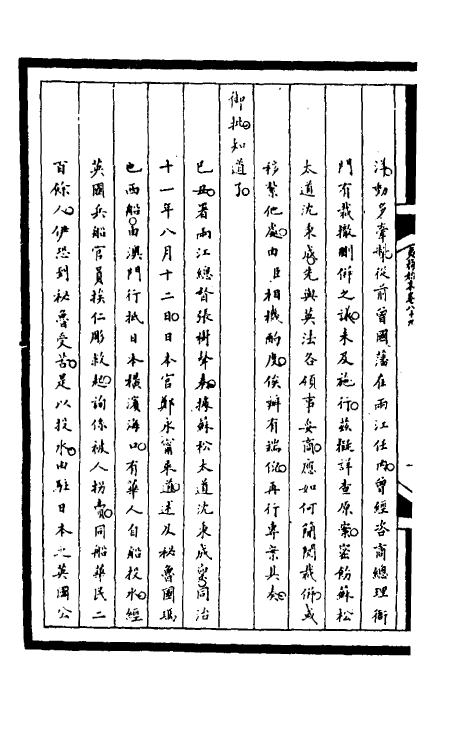 涉動多牽執從前曾國藩在兩江任內曾經咨商總理衙
門有裁撤刪併之議未及施行茲擬詳查原案密飭蘇松
太道沈秉成先與英法各領事妥商應如何簡閱裁併或
移紮他處由臣相機酌度俟辦有端倪再行專案具奏
御批知道了
己丑署兩江總督張樹聲奏據蘇松太道沈秉成稟同治
十一年八月十二日日本官鄭永甯來道述及祕魯國瑪
也西船由澳門行抵日本橫濱海口有華人自船投水經
英國兵船官員挨仁彫救起詢係被人拐賣同船華民二
百餘人伊恐到祕魯受苦是以投水由駐日本之英國公